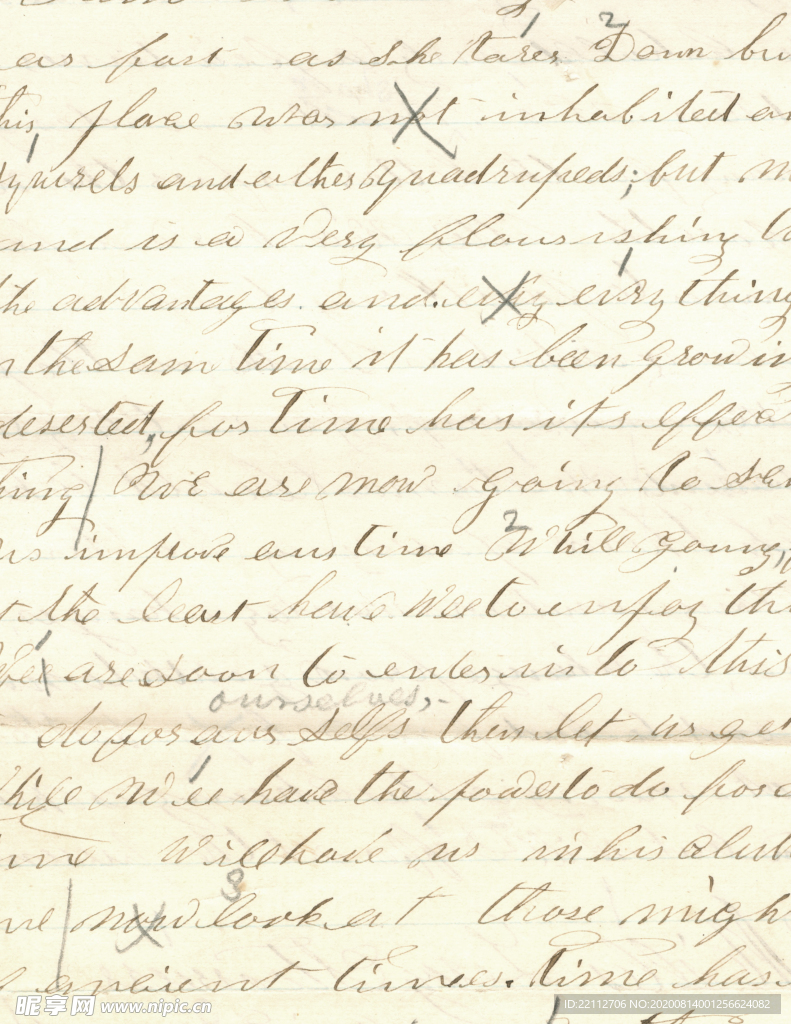 as fast as she tares Down bu
this place was not inhabited
squirels and other quadrupeds; but
and is a Very flourishing
the advantages. and. evry evry thing
the same time it has been growin
deserted, for Time has its effec
thing We are now going to
us improve our time While young,
the least have Wee to injoy th
Wee are soon to enter in to this
ourselves,-
do for our selfs then let us ge
While Wee have the power to do for
time Will have us in his clut
now look at those migh
ancient times. Time has
昵享网 www.nipic.cn
ID:22112706 NO:20200814001256624082